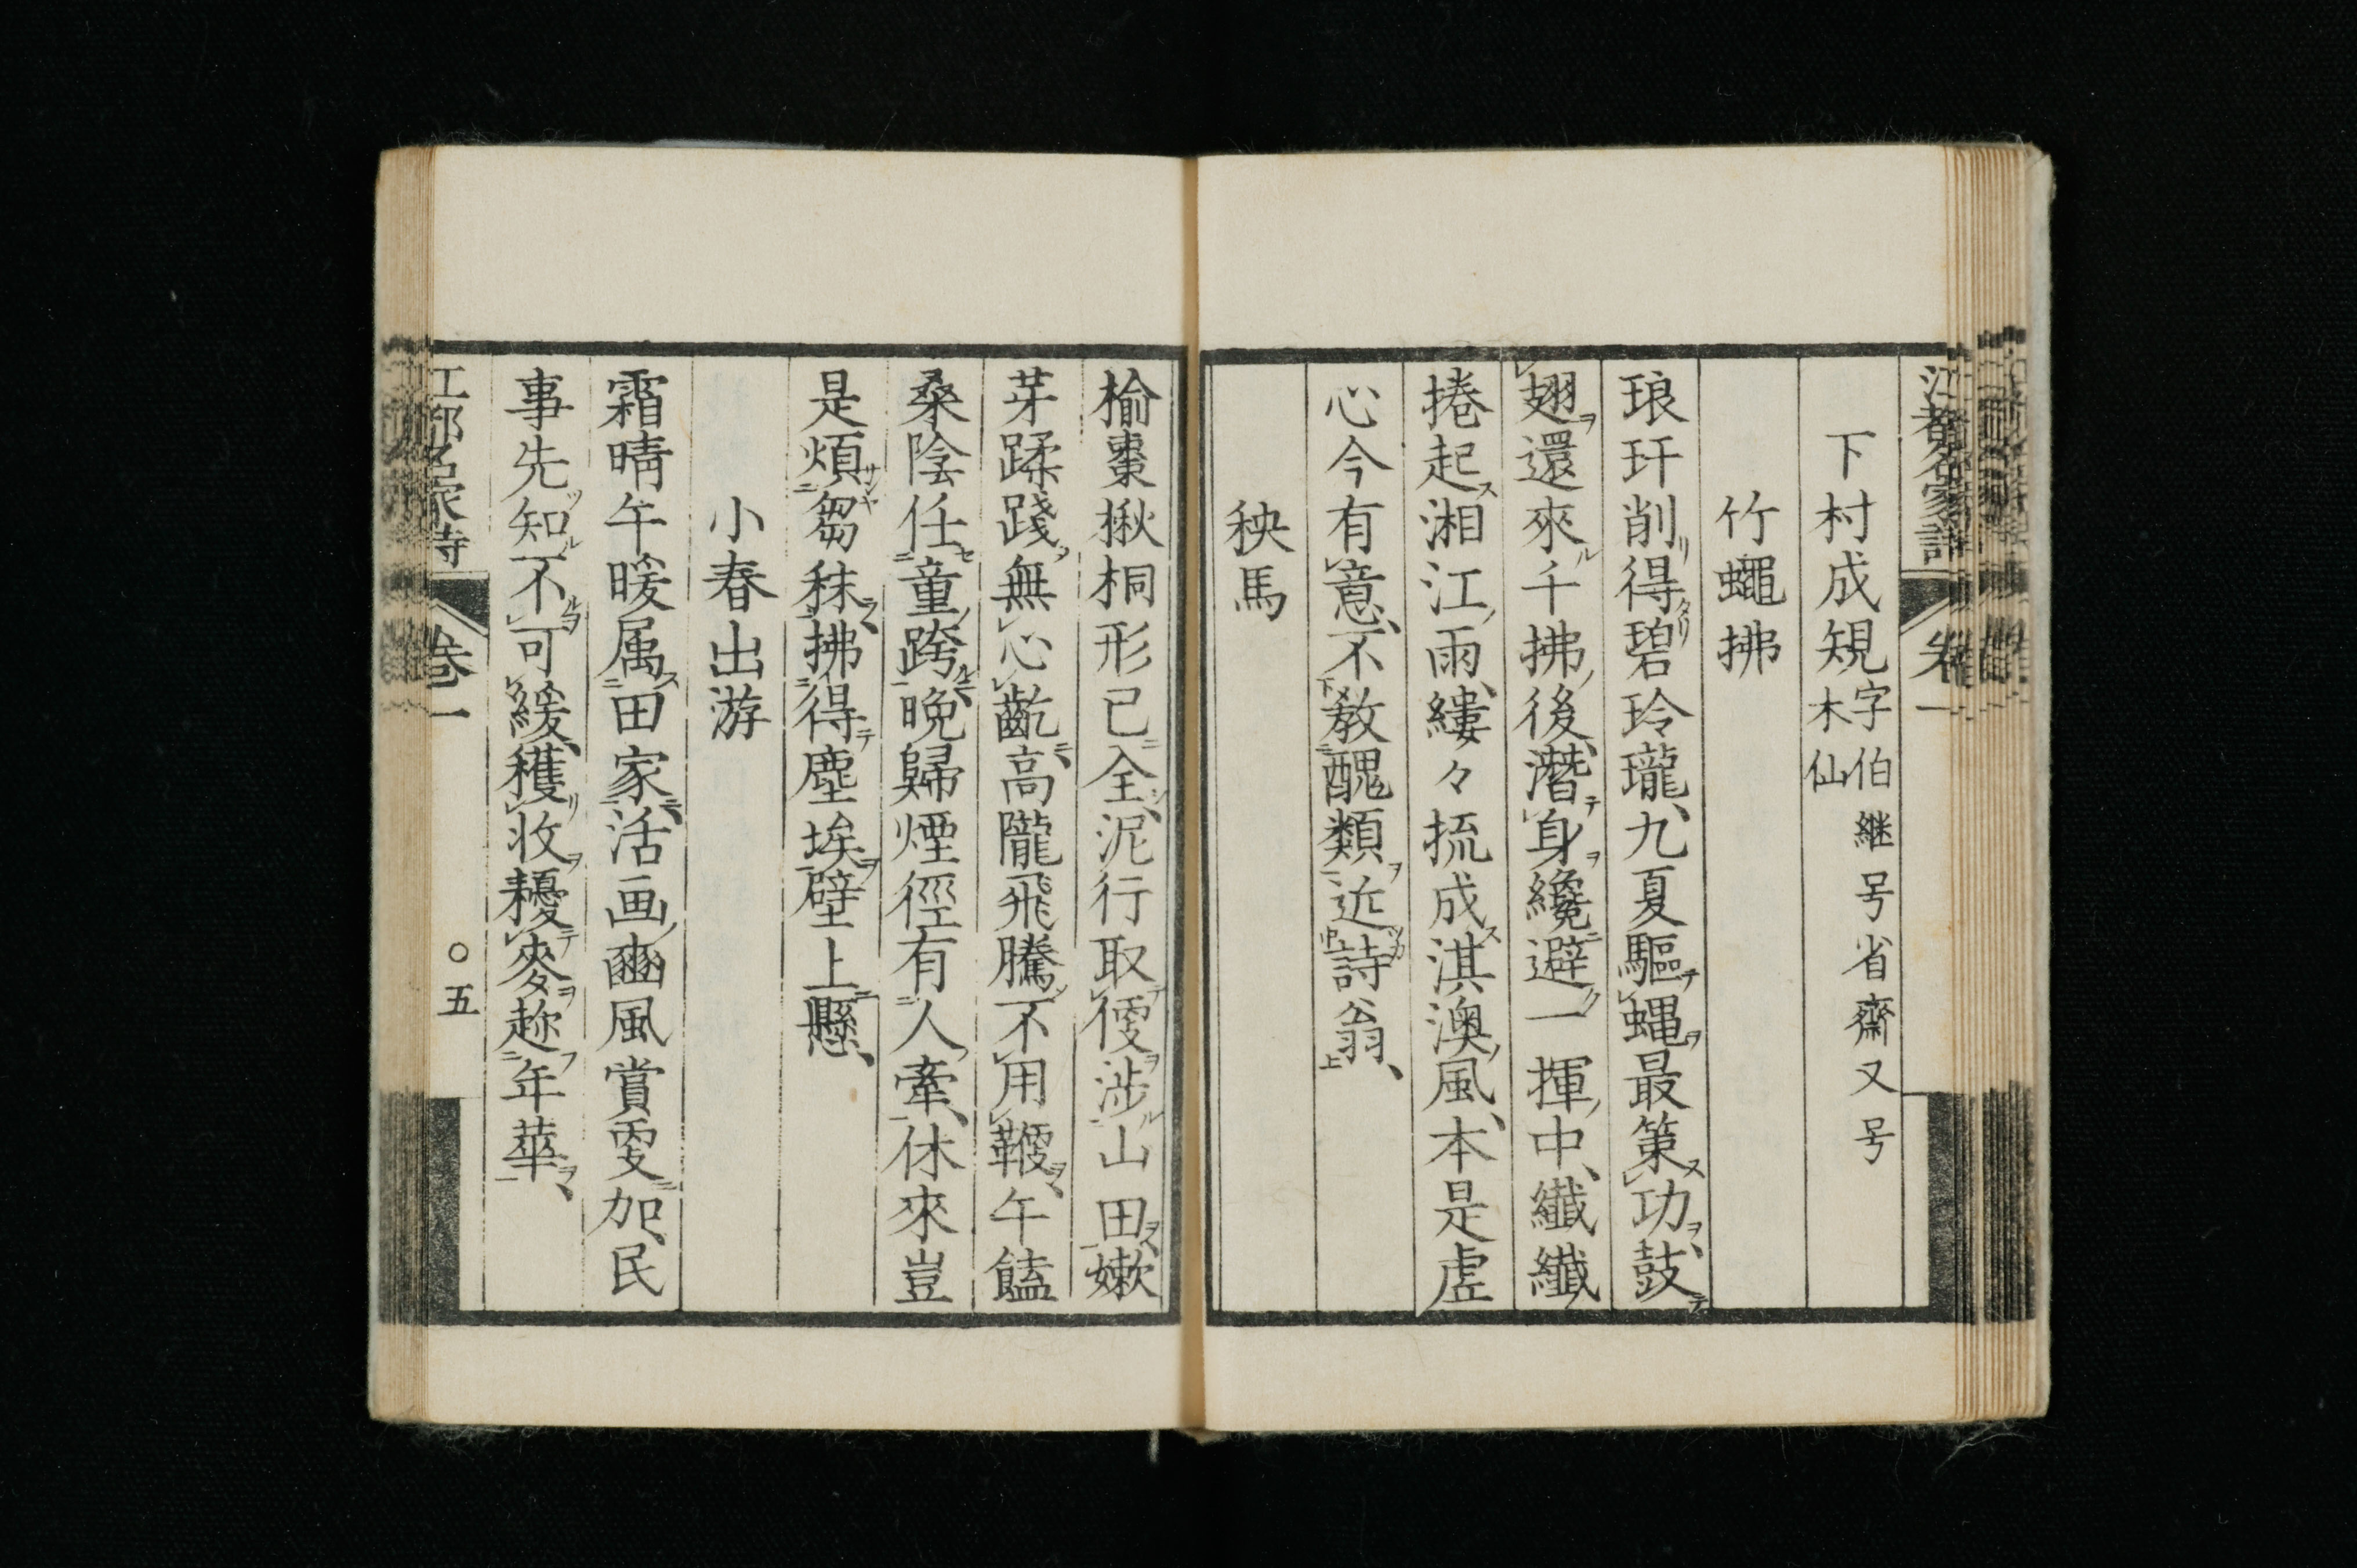 江都名家詩
卷一
下村成規字伯継号省齋又号
木仙
竹蠅拂
琅玕削得碧玲瓏、九夏驅蝿最策功、鼓
翅還來千拂後、潛身纔避一揮中、纖纖
捲起湘江雨、縷々梳成淇澳風、本是虚
心今有意、不教醜類近詩翁、
秧馬
榆棗楸桐形已全、泥行取便涉山田、嫩
芽蹂踐無心齕、高隴飛騰不用鞭、午饁
桑陰任童跨、晚歸煙徑有人牽、休來豈
是煩芻秣、拂得塵埃壁上懸、
小春出游
霜晴午暖属田家、活画豳風賞更加、民
事先知不可緩、穫收耰麥趂年華、
江都名家詩
卷一
○五